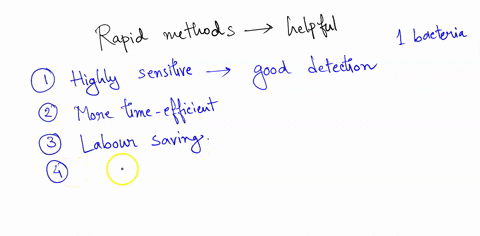 Rapid methods → helpful
1 bacteria
1 Highly sensitive → good detection
2 More time-efficient
3 Labour saving.
4